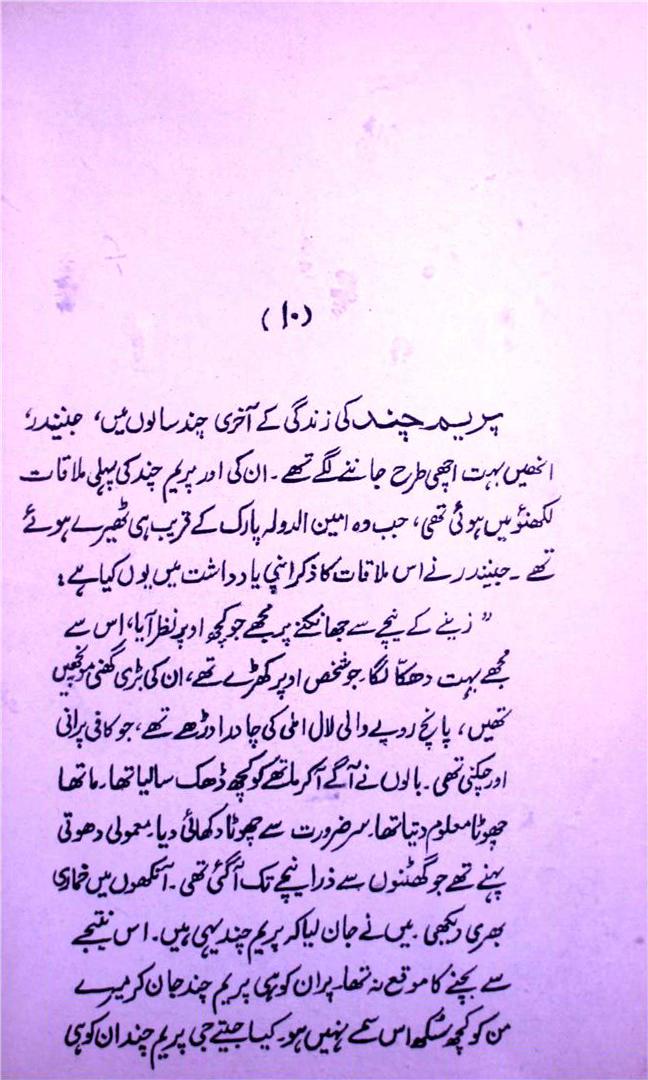 (۱۰)
پریم چند کی زندگی کے آخری چند سالوں میں، جنیندر،
انھیں بہت اچھی طرح جاننے لگے تھے۔ ان کی اور پریم چند کی پہلی ملاقات
لکھنؤ میں ہوئی تھی، جب وہ امین الدولہ پارک کے قریب ہی ٹھیرے ہوئے
تھے۔ جنیندر نے اس ملاقات کا ذکر اپنی یادداشت میں یوں کیا ہے:
"زینے کے نیچے سے جھانکنے پر مجھے جو کچھ اوپر نظر آیا، اس سے
مجھے بہت دھکّا لگا۔ جو شخص اوپر کھڑے تھے، ان کی بڑی گھنی مونچھیں
تھیں، پانچ روپے والی لال املی کی چادر اوڑھے تھے، جو کافی پرانی
اور چکنی تھی۔ بالوں نے آگے آکر ماتھے کو کچھ ڈھک سا لیا تھا۔ ماتھا
چھوٹا معلوم دیتا تھا۔ سر ضرورت سے چھوٹا دکھائی دیا۔ معمولی دھوتی
پہنے تھے جو گھٹنوں سے ذرا نیچے تک آگئی تھی۔ آنکھوں میں خماری
بھری دیکھی۔ میں نے جان لیا کہ پریم چند یہی ہیں۔ اس نتیجے
سے بچنے کا موقع نہ تھا۔ پر ان کو ہی پریم چند جان کر میرے
من کو کچھ سُکھ اس سمے نہیں ہو۔ کیا جیتے جی پریم چند ان کو ہی